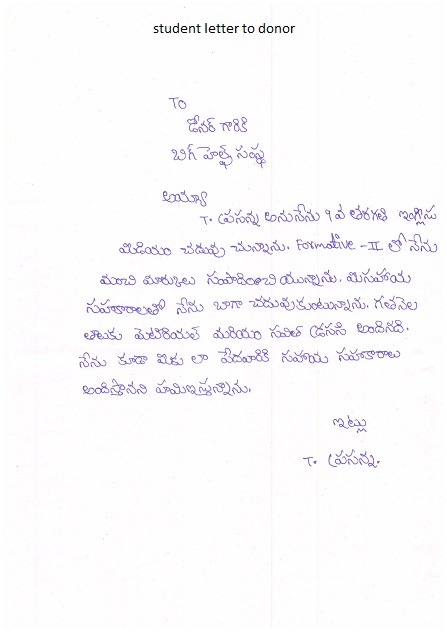 student letter to donor
To
డోనర్ గారికి
బిగ్ హెల్ప్ సంస్థ
అయ్యా
T. ప్రసన్న అను నేను 9 వ తరగతి ఇంగ్లీసు
మీడియం చదువు చున్నాను. Formative - II లో నేను
మంచి మార్కులు సంపాదించి యున్నాను. మీసహాయ
సహకారాలతో నేను బాగా చదువుకుంటున్నాను. గతనెల
మెటీరియల్ మరియు అందినది.
నేను కూడా మీకు లా పేదవారికి సహాయ సహకారాలు
అందిస్తానని హమిఇస్తున్నాను.
ఇట్లు
T. ప్రసన్న.